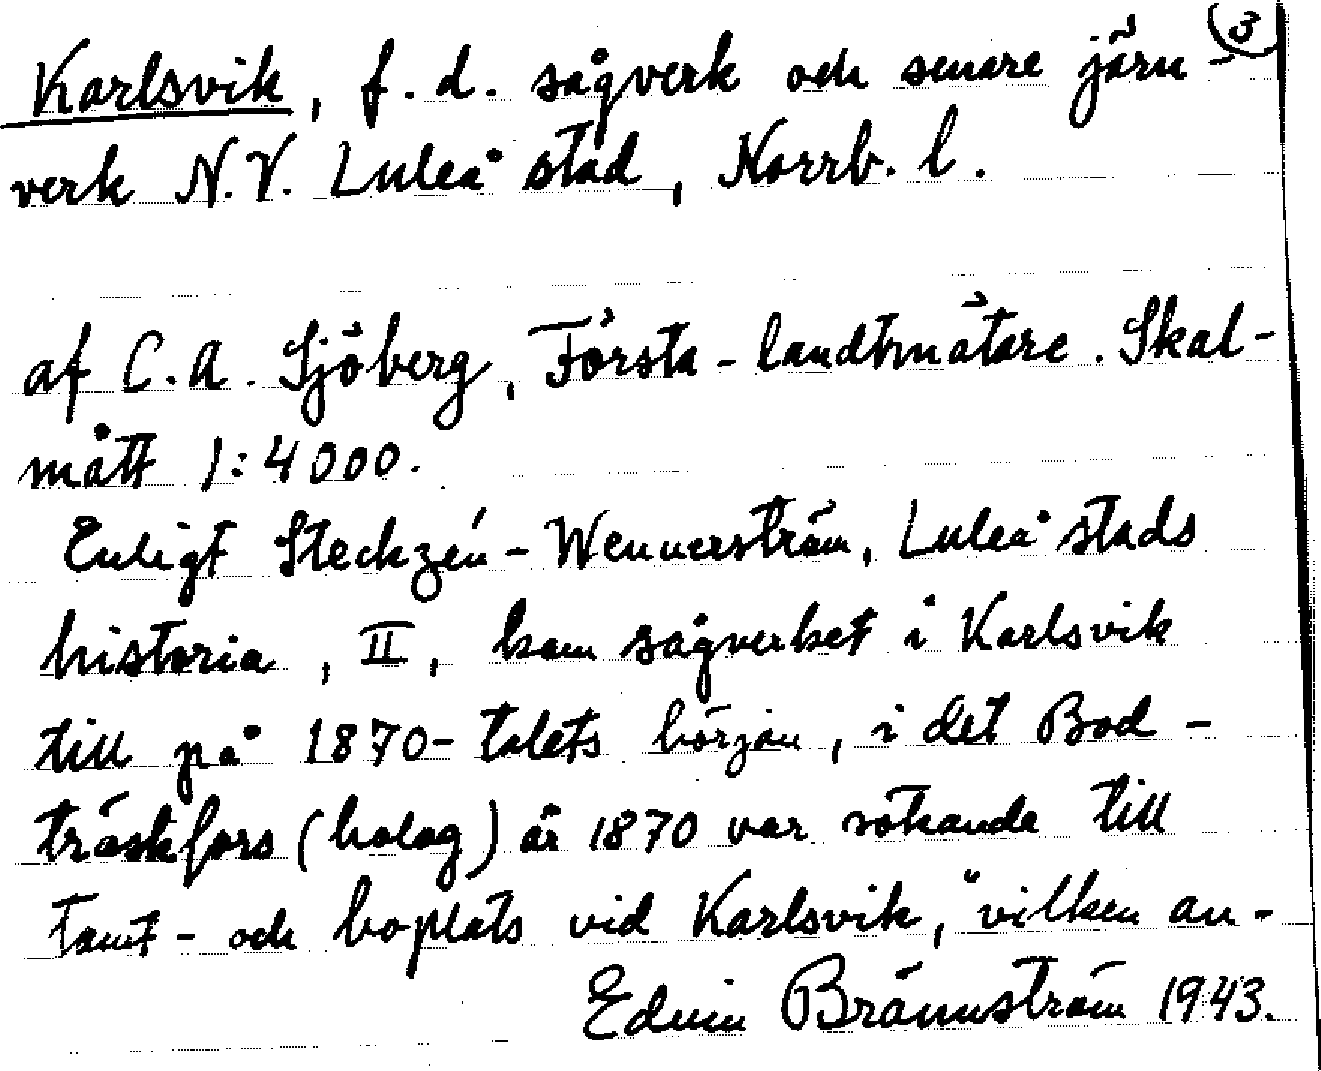 3
Karlsvik, f. d. sågverk och senare järn-
verk N.V. Luleå stad, Norrb. l.
af C. A. Sjöberg, Första-landtmätare. Skal-
mått 1:4000.
Enligt Steckzén-Wennerström, Luleå stads
historia, II, kom sågverket i Karlsvik
till på 1870-talets början, i det Bod-
träskfors (bolag) år 1870 var sökande till
tomt- och boplats vid Karlsvik, "vilken an-
Edvin Brännström 1943.